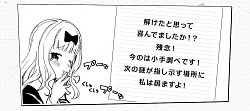 解けたと思って
喜んでましたか!?
残念!
今のは小手調べです!
次の謎が指し示す場所に
私は居ますよ!
ぷぷー
くすくす